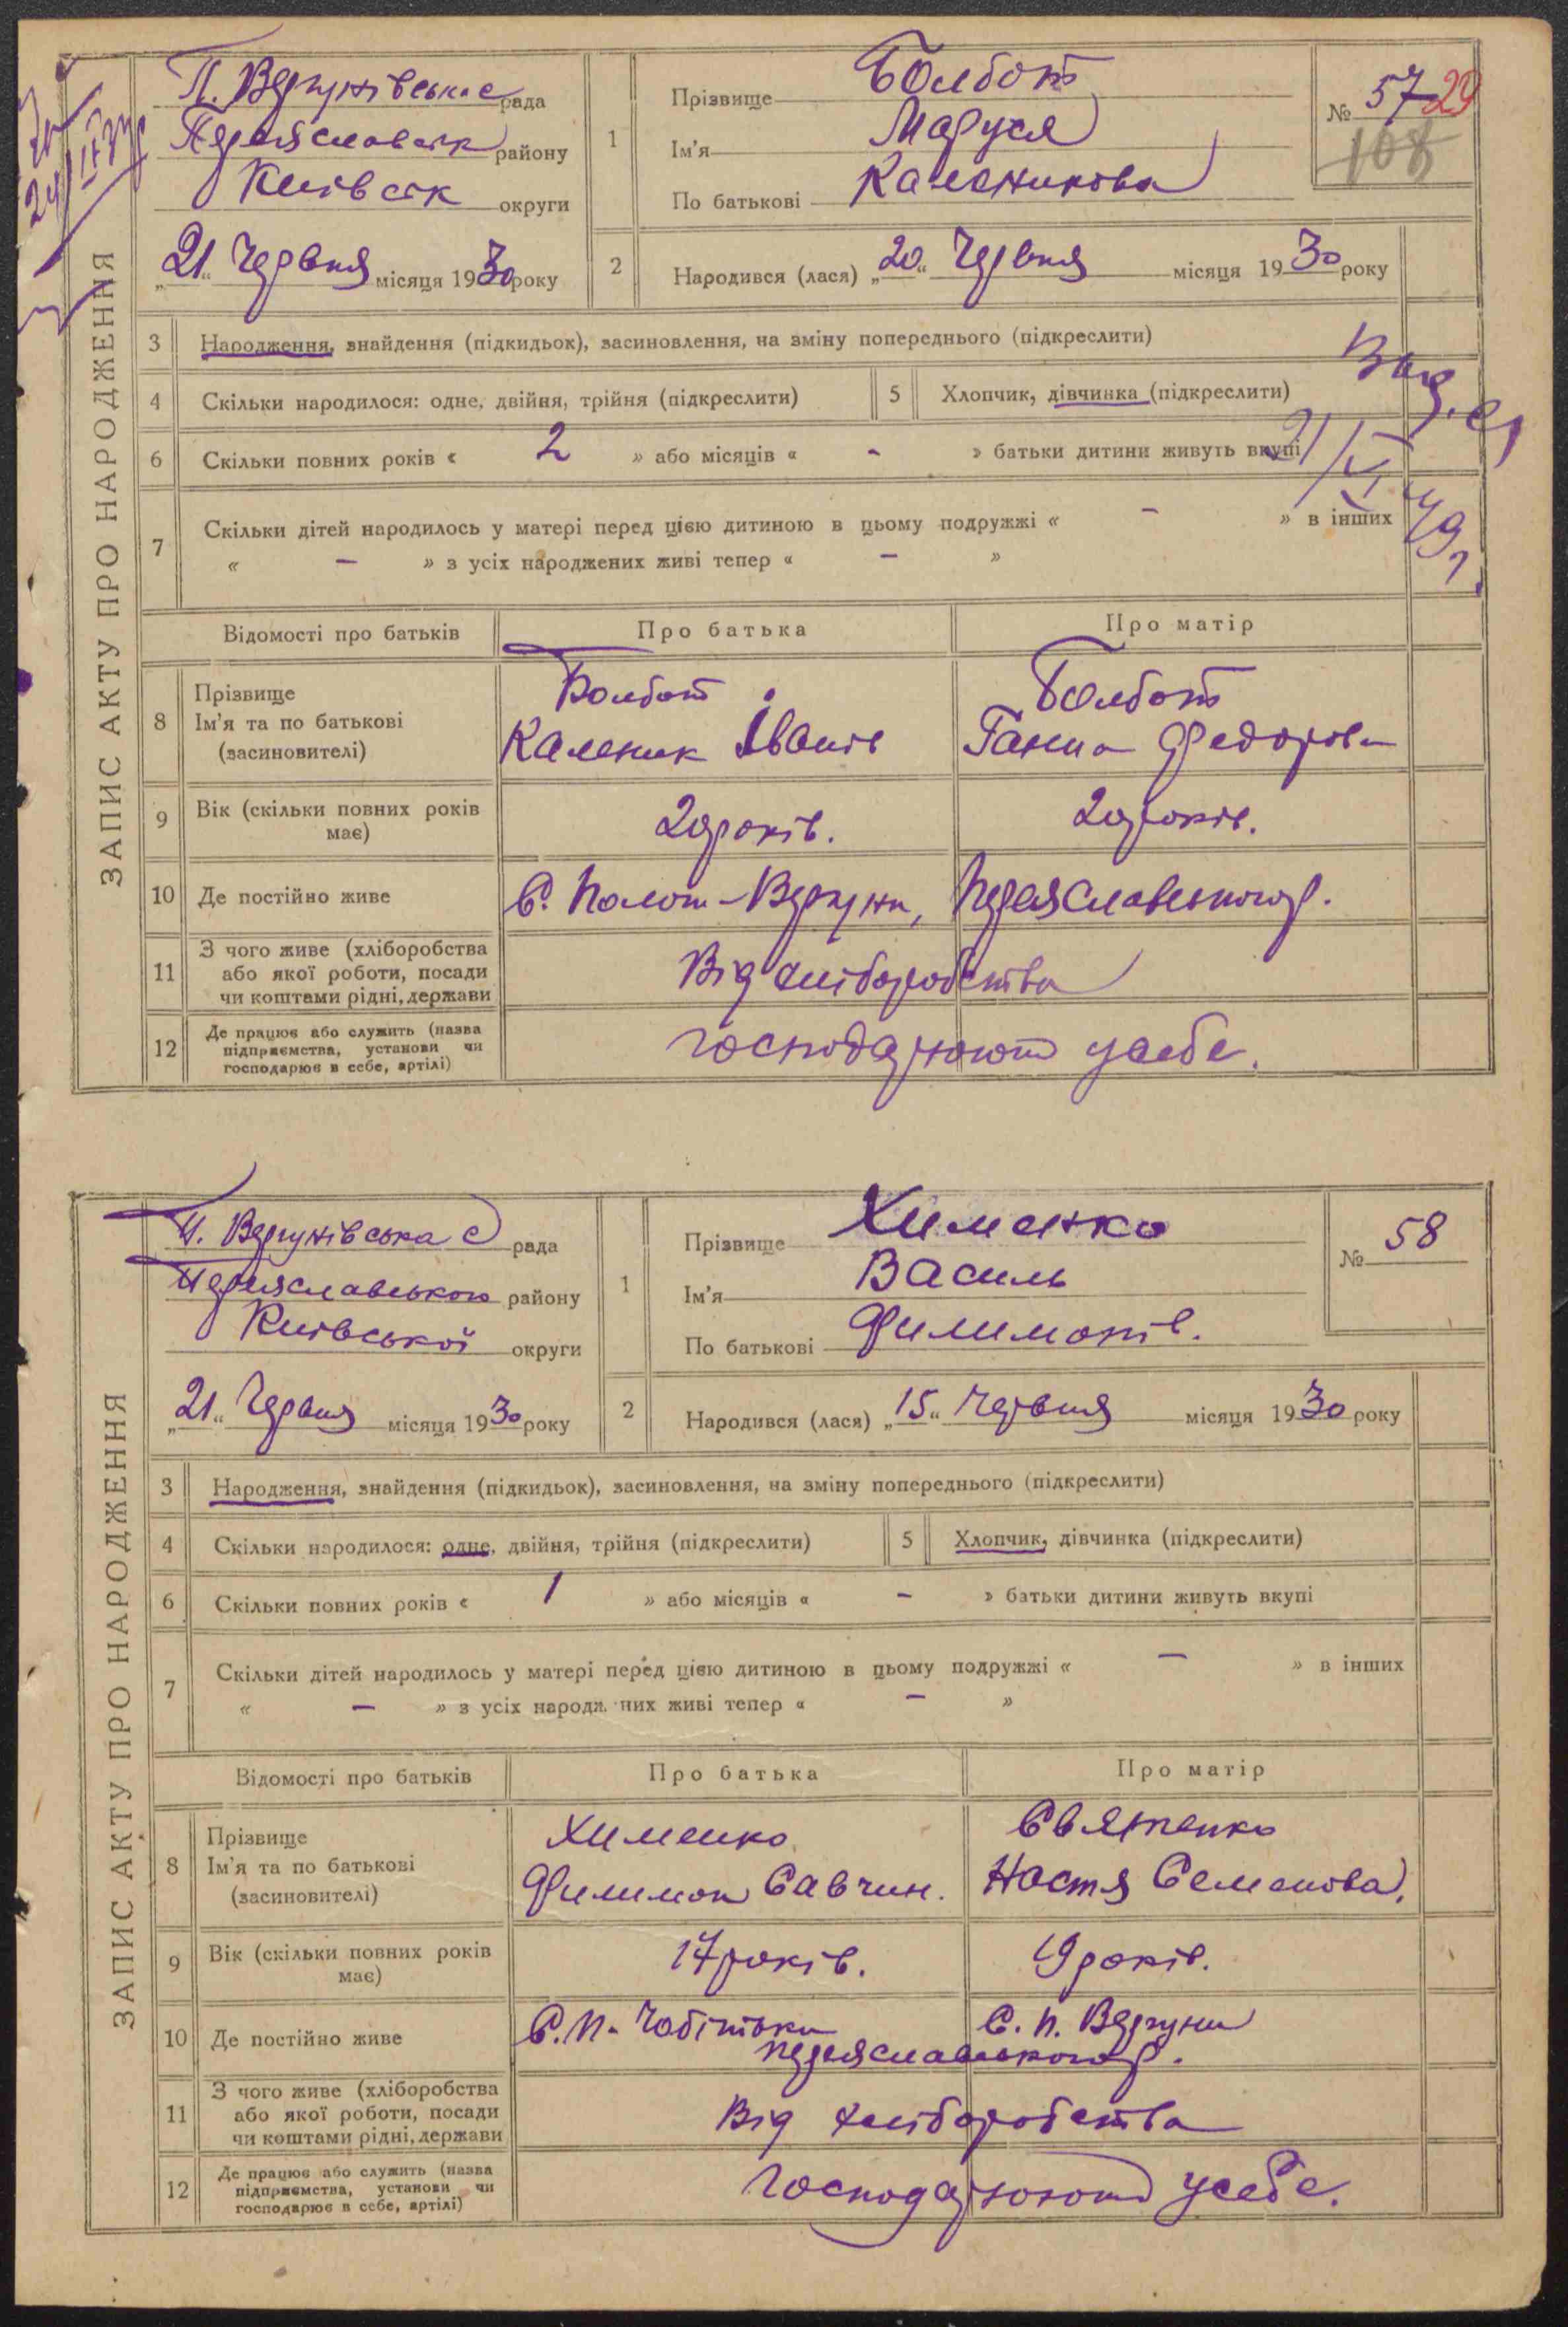 ЗАПИС АКТУ ПРО НАРОДЖЕННЯ
П. Вергунівська с рада
Переяславськ району
Київськ округи
„21“ Червня місяця 1930 року
1
Прізвище Болбот
Ім'я Маруся
По батькові Каленикова
№ 57 29
108
2
Народився (лася) „20“ Червня місяця 1930 року
3 Народження, знайдення (підкидьок), засиновлення, на зміну попереднього (підкреслити)
4 Скільки народилося: одне, двійня, трійня (підкреслити) 5 Хлопчик, дівчинка (підкреслити)
6 Скільки повних років « 2 » або місяців « - » батьки дитини живуть вкупі
7 Скільки дітей народилось у матері перед цією дитиною в цьому подружжі « — » в інших
« — » з усіх народжених живі тепер « — »
Відомості про батьків Про батька Про матір
8 Прізвище
Ім'я та по батькові
(засиновителі)
Болбот
Каленик Іванів
Болбот
Ганна Федорова
9 Вік (скільки повних років має) 20 років. 20 років.
10 Де постійно живе С. Полог-Вергуни, Переяславського р.
11 З чого живе (хліборобства
або якої роботи, посади
чи коштами рідні, держави
Від хліборобства
12 Де працює або служить (назва
підприємства, установи чи
господарює в себе, артілі)
господарюют усебе.
ЗАПИС АКТУ ПРО НАРОДЖЕННЯ
П. Вергунівська с рада
Переяславського району
Київської округи
„21“ Червня місяця 1930 року
1
Прізвище Хименко
Ім'я Василь
По батькові Филимонів.
№ 58
2
Народився (лася) „15“ Червня місяця 1930 року
3 Народження, знайдення (підкидьок), засиновлення, на зміну попереднього (підкреслити)
4 Скільки народилося: одне, двійня, трійня (підкреслити) 5 Хлопчик, дівчинка (підкреслити)
6 Скільки повних років « 1 » або місяців « - » батьки дитини живуть вкупі
7 Скільки дітей народилось у матері перед цією дитиною в цьому подружжі « — » в інших
« — » з усіх народжених живі тепер « — »
Відомості про батьків Про батька Про матір
8 Прізвище
Ім'я та по батькові
(засиновителі)
Хименко
Филимон Савчин.
Святенко
Настя Семенова.
9 Вік (скільки повних років має) 17 років. 19 років.
10 Де постійно живе С. П. Чобітьки С. П. Вергуни
Переяславського р.
11 З чого живе (хліборобства
або якої роботи, посади
чи коштами рідні, держави
Від хліборобства
12 Де працює або служить (назва
підприємства, установи чи
господарює в себе, артілі)
Господарюют усебе.